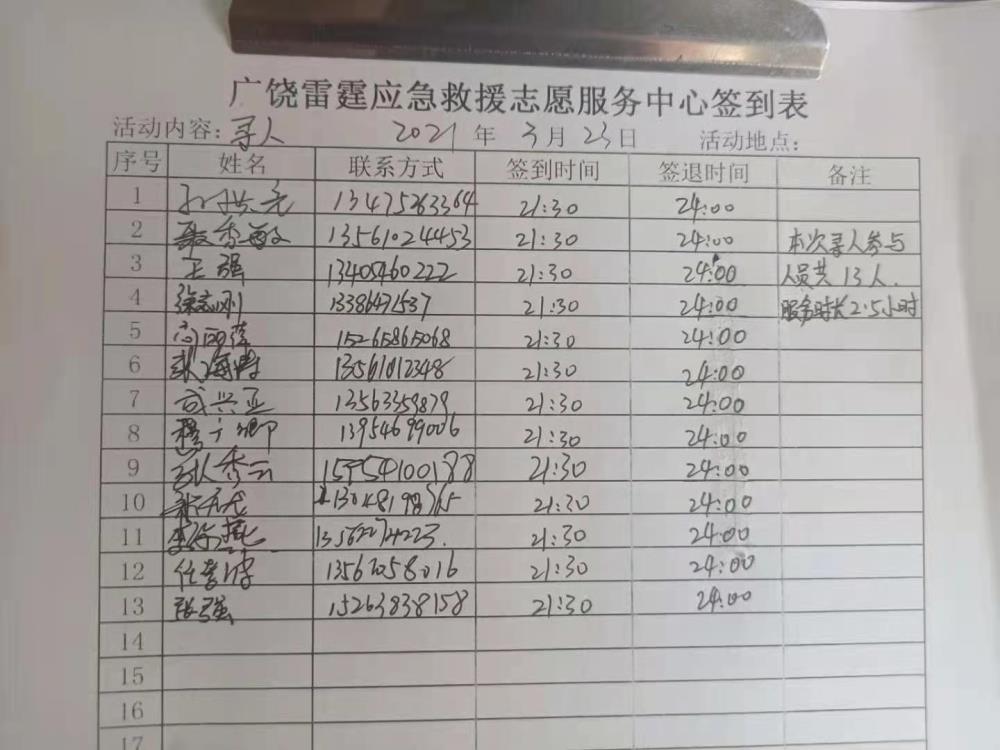 广饶雷霆应急救援志愿服务中心签到表
活动内容：寻人 2021年3月23日 活动地点：
序号 姓名 联系方式 签到时间 签退时间 备注
1 13475263364 21:30 24:00
2 13561024453 21:30 24:00 本次寻人参与
3 王强 13405460222 21:30 24:00 人员共13人.
4 徐志刚 13386471537 21:30 24:00 服务时长2.5小时
5 15265865068 21:30 24:00
6 13561012348 21:30 24:00
7 成兴亚 13563359879 21:30 24:00
8 13954699006 21:30 24:00
9 秀云 15554100188 21:30 24:00
10 21:30 24:00
11 21:30 24:00
12 13561058016 21:30 24:00
13 张强 15263838158 21:30 24:00
14
15
16
17